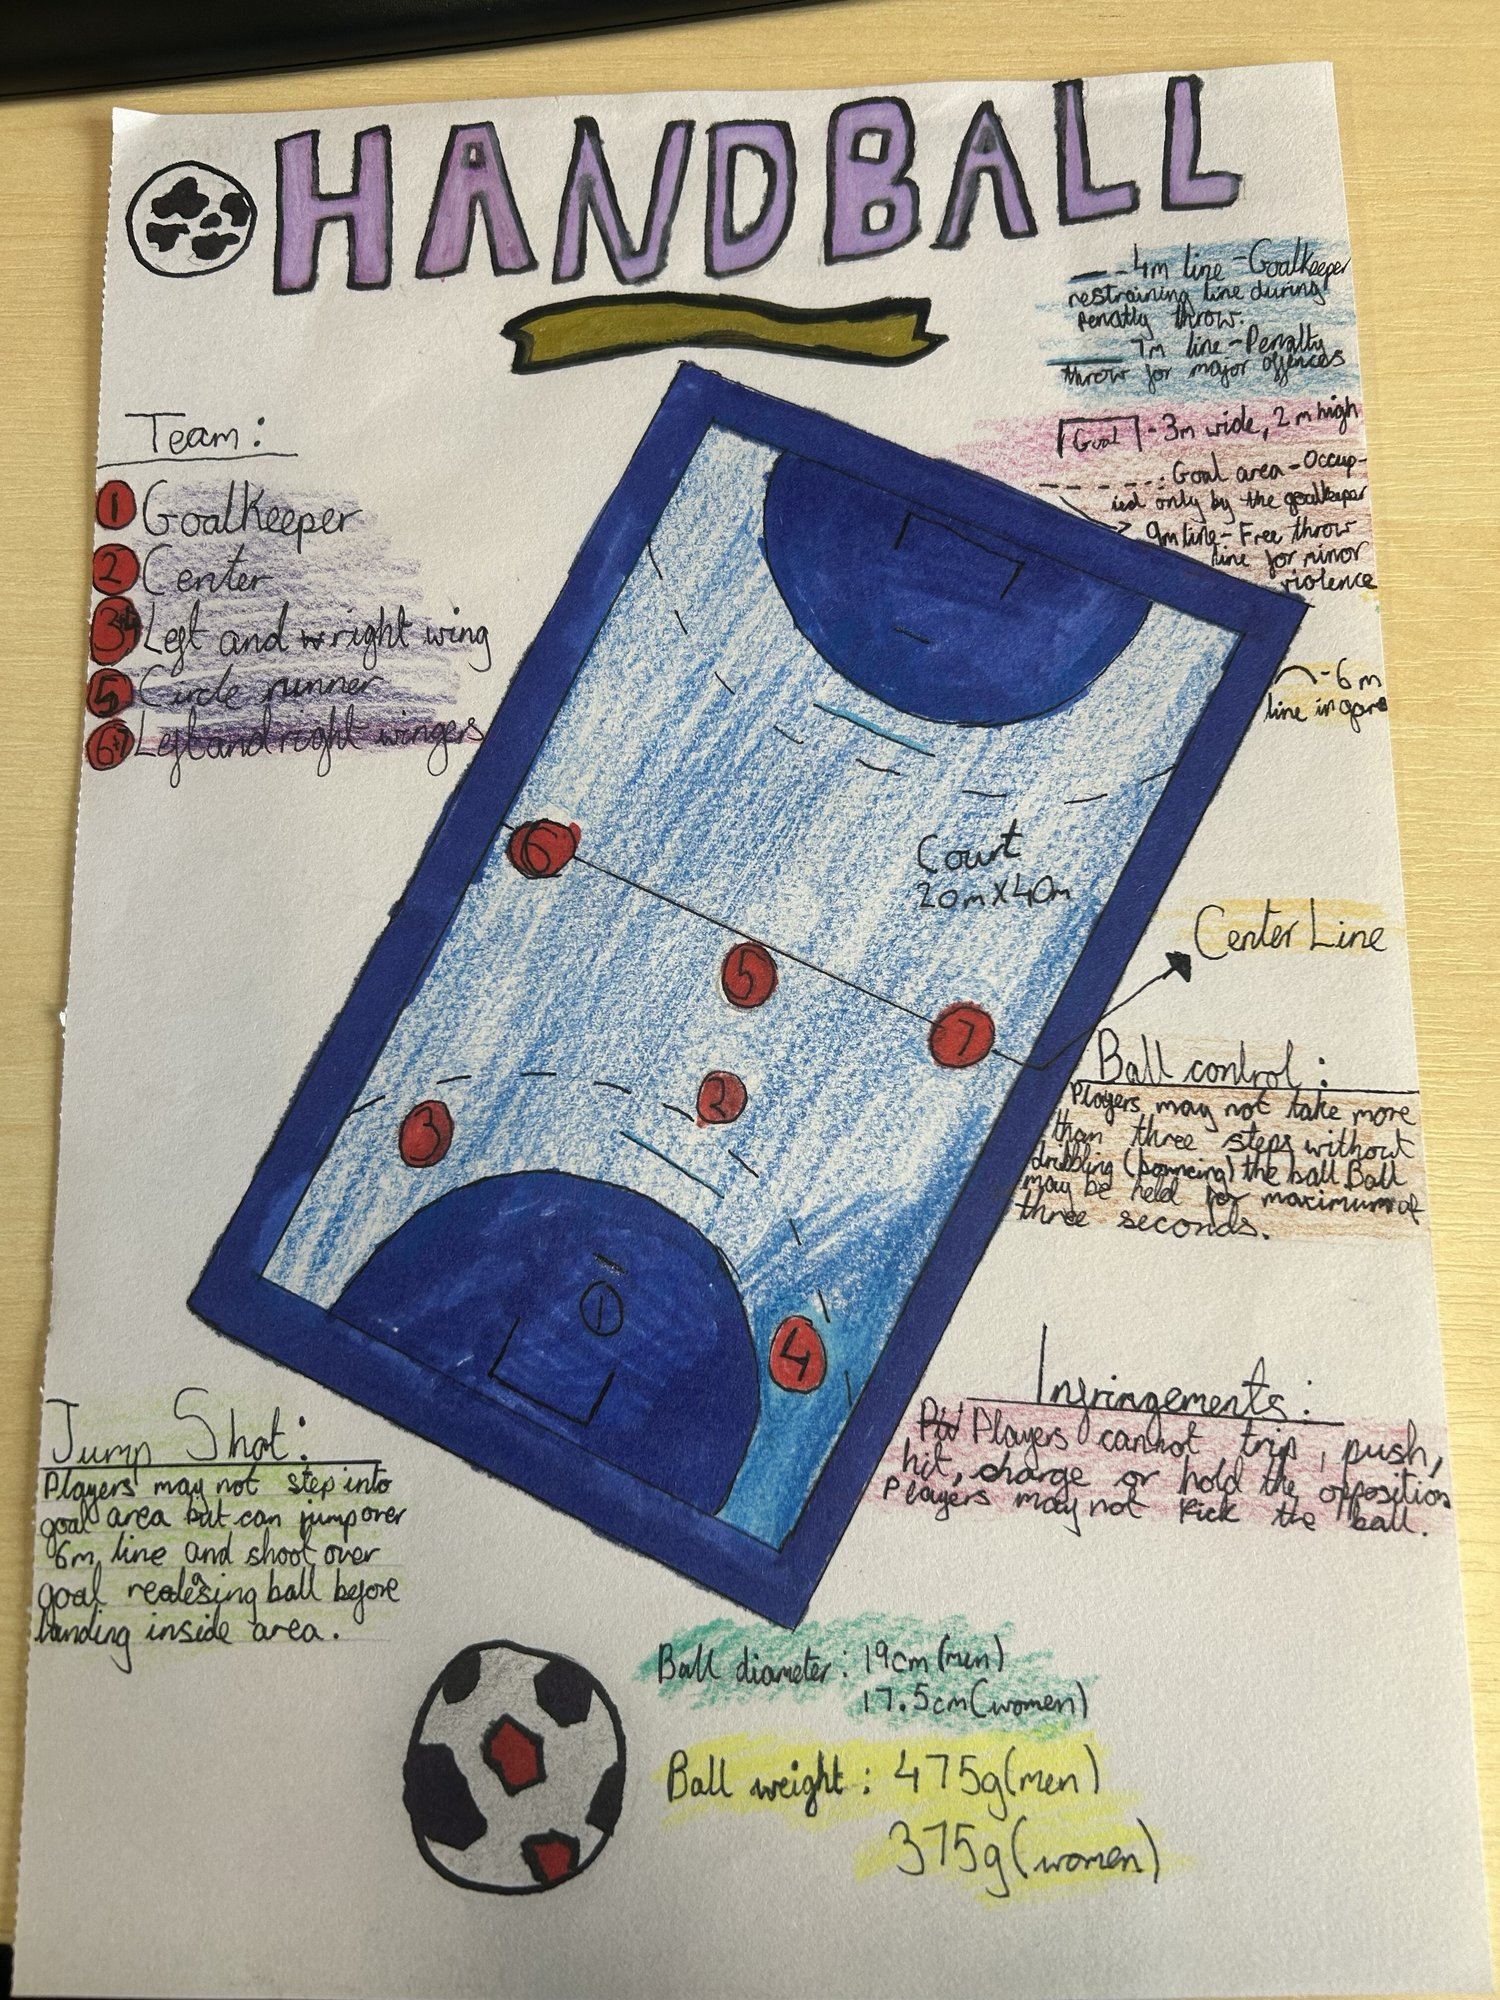 HANDBALL
- 4m line - Goalkeeper
restraining line during
penatly throw.
7m line - Penalty
throw for major offences
Goal - 3m wide, 2m high
Goal area - Occup-
ied only by the goalkeeper
9m line - Free throw
line for minor
violence
- 6m
line in
Team:
1 Goalkeeper
2 Center
3+4 Left and right wing
5 Circle runner
6+7 Left and right wingers
Court
20m X 40m
6
5
7
2
3
1
4
Center Line
Ball control:
Players may not take more
than three steps without
dribbling (bouncing) the ball. Ball
may be held for maximum of
three seconds.
Infringements:
Players cannot trip, push,
hit, charge or hold the opposition
Players may not kick the ball.
Jump Shot:
Players may not step into
goal area but can jump over
6m line and shoot over
goal realesing ball before
landing inside area.
Ball diameter: 19cm (men)
17.5cm (women)
Ball weight: 475g (men)
375g (women)